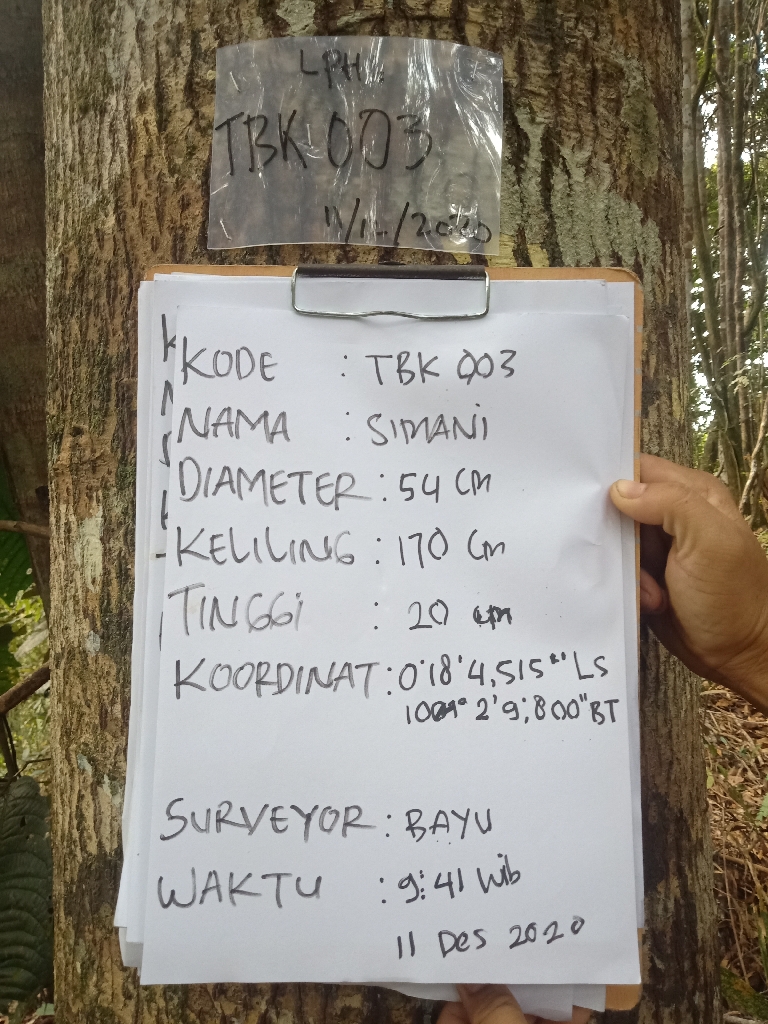 LPH
TBK 003
11/12/2020
KODE : TBK 003
NAMA : SIMANI
DIAMETER : 54 cm
KELILING : 170 cm
TINGGI : 20 cm
KOORDINAT : 0°18'4,515" LS
2'9,800" BT
SURVEYOR : BAYU
WAKTU : 9:41 Wib
11 Des 2020